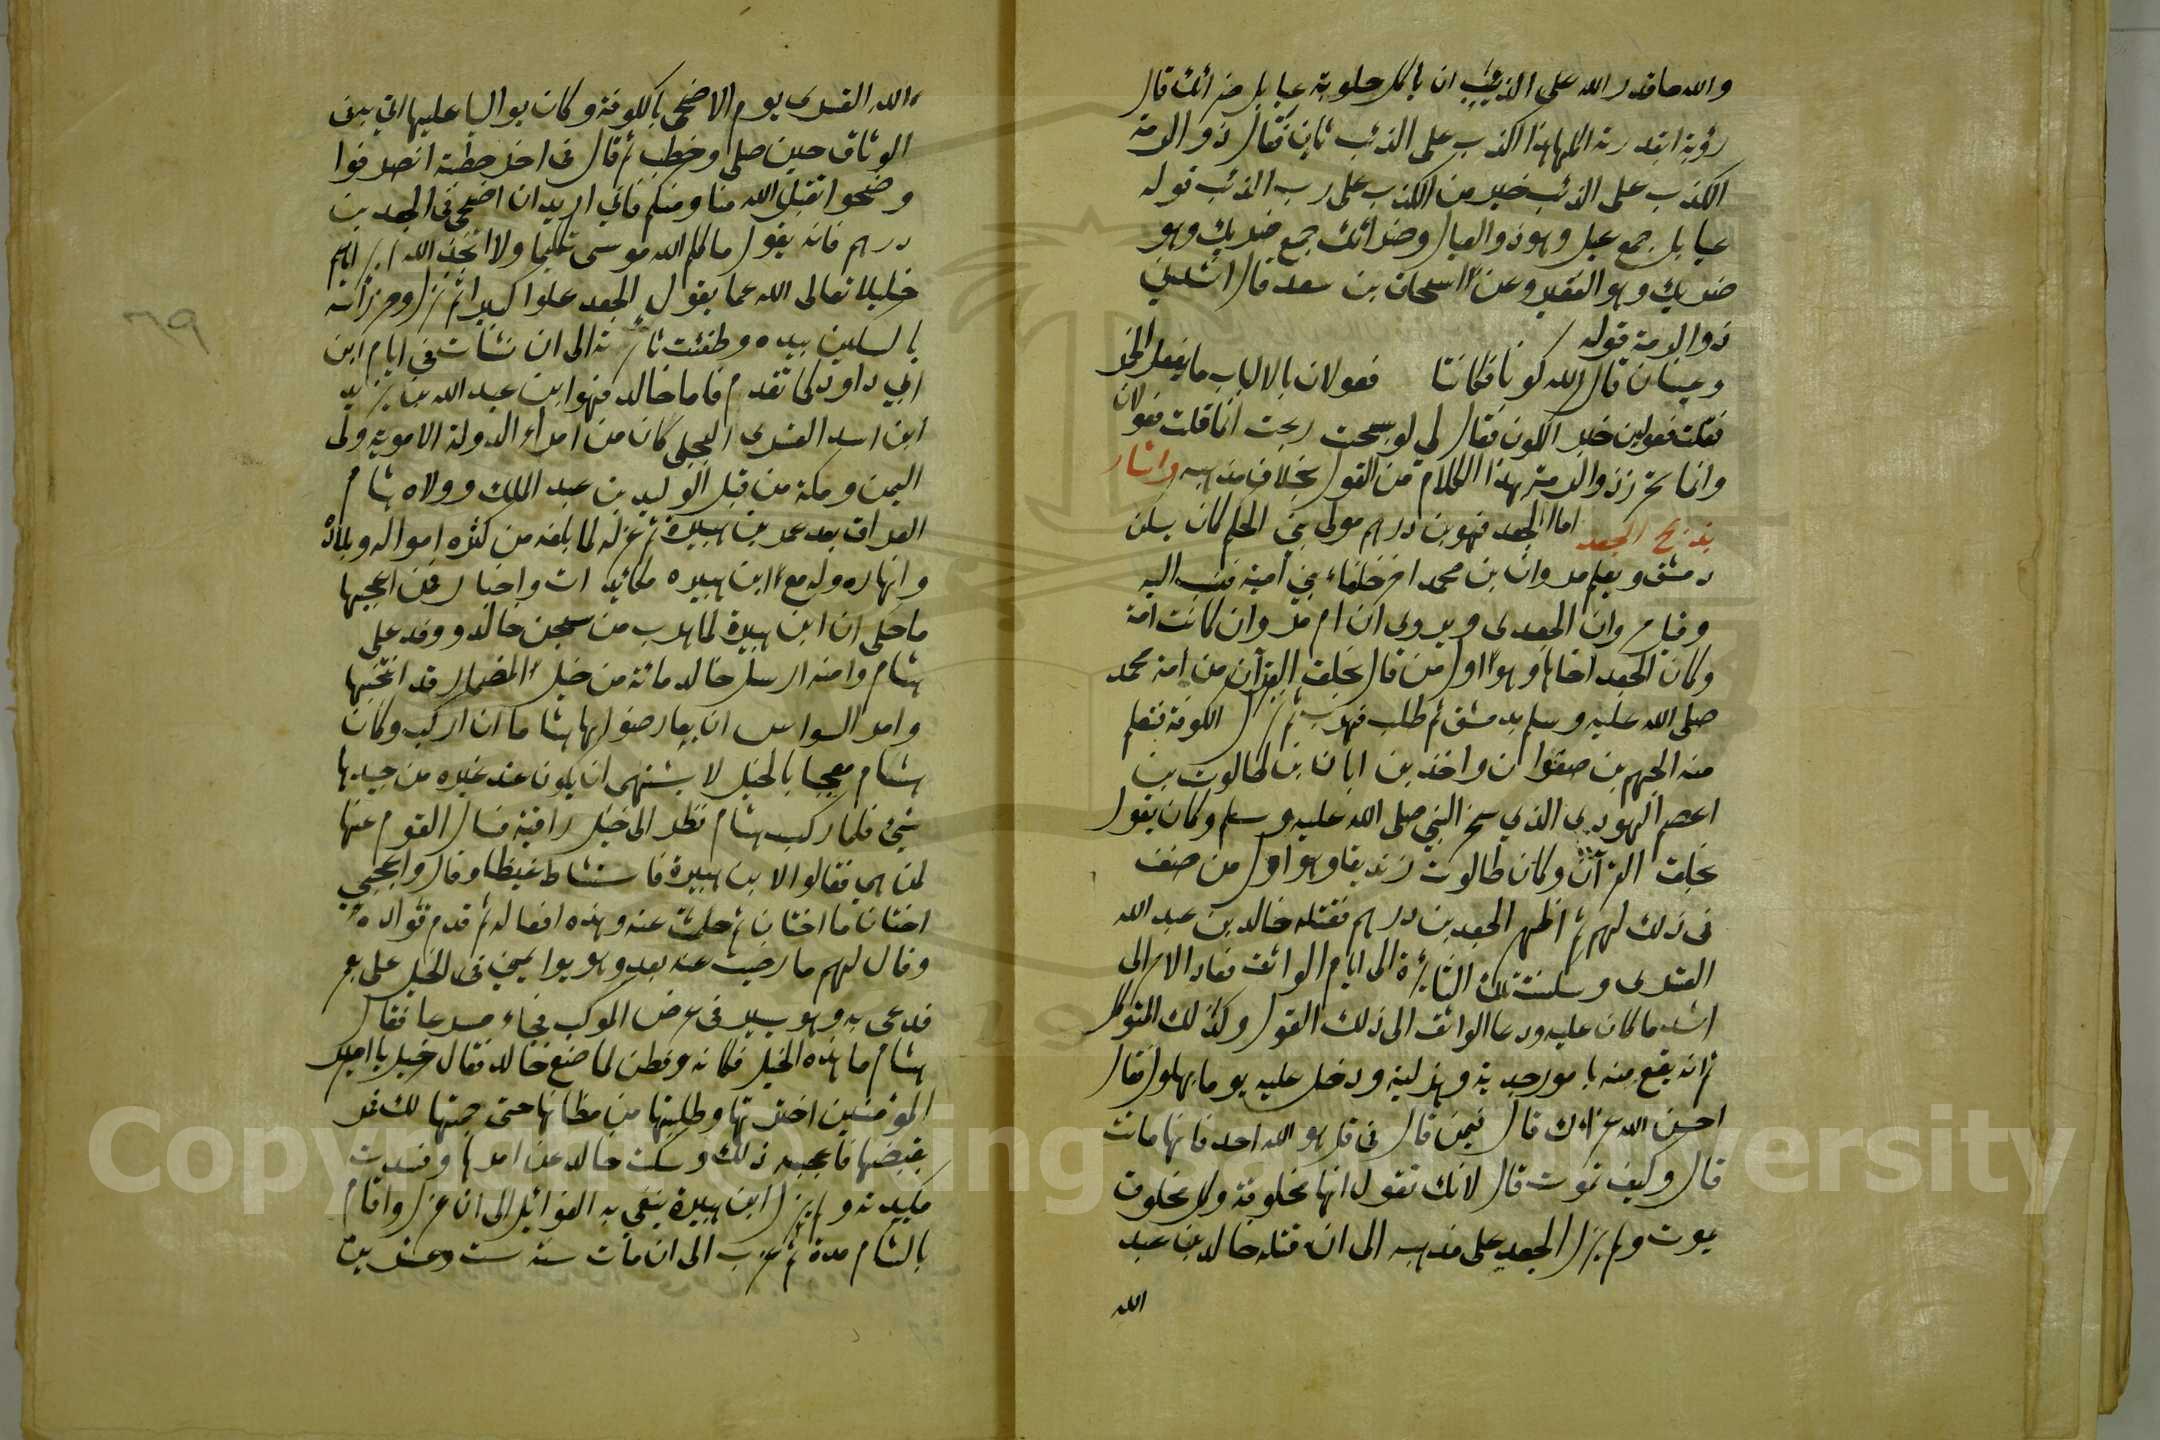 والله ما قدر الله على الذئب ان ياكل حلوبة عيايل ضرائك قال
رؤبة ابقدرته اكلها هذا كذب على الذئب ثان فقال ذو الرمة
الكذب على الذئب خير من الكذب على رب الذئب قوله
عيايل جمع عيل وهو ذو العيال وضرائك جمع ضريك وهو
ضريك وهو الفقير وعن اسحاق بن سعد قال انشدني
ذو الرمة قوله
وعينان قال الله كونا فكانتا فعولان بالالباب ما يفعل الخمر
فقلت فعولين خبر الكون فقال لي لو سبحت ربحت انما قلت فعولان
وانما تحرز ذو الرمة بهذا الكلام من القول بخلاف مذهبه واشار
بذبح الجعد اما الجعد فهو بن درهم مولى بني الحكم كان يسكن
دمشق ويعلم مروان بن محمد اخر خلفاء بني امية فنسب اليه
وقيل مروان الجعدى ويروى ان ام مروان كانت امة
وكان الجعد اخاها وهو اول من قال بخلق القرآن من امة محمد
صلى الله عليه وسلم بدمشق ثم طلب فهرب ثم نزل الكوفة فتعلم
منه الجهم بن صفوان واخذ بن ابان بن طالوت بن
اعصم اليهودي الذي سحر النبي صلى الله عليه وسلم وكان يقول
بخلق القرآن وكان طالوت زنديقا وهو اول من صنف
فى ذلك لهم ثم اظهر الجعد بن درهم فقتله خالد بن عبد الله
القسرى وسكنت تلك النائرة الى ايام الواثق فعاد الامر الى
اشد ما كان عليه ودعا الواثق الى ذلك القول وكذلك المتوكل
ثم انه يقع منه بامور جدية وهزلية ودخل عليه يوما بهلول فقال
احسن الله عزاءك قال فيمن قال فى قل هو الله احد فانها ماتت
قال وكيف تموت قال لانك تقول انها مخلوقة وكل مخلوق
يموت ولم يزل الجعد على مذهبه الى ان قتله خالد بن عبد
الله
الله القسرى يوم الاضحى بالكوفة وكان واليا عليها اتي به فى
الوثاق حين صلى وخطب ثم قال فى اخر خطبته انصرفوا
وضحوا تقبل الله منا ومنكم فاني اريد ان اضحى فى الجعد بن
درهم فانه يقول ما كلم الله موسى تكليما ولا اتخذ الله ابراهيم
خليلا تعالى الله عما يقول الجعد علوا كبيرا ثم نزل وحز رأسه
بالسكين بيده وطفئت نائرته الى ان نشات فى ايام ابن
ابي داود كما تقدم فاما خالد فهو ابن عبد الله بن يزيد
ابن اسد القسرى البجلي كان من امراء الدولة الاموية ولى
اليمن ومكة من قبل الوليد بن عبد الملك وولاه هشام
العراق بعد عمر بن هبيرة ثم عزله لما بلغه من كثره امواله وبلاده
وانهاره وله مع ابن هبيره مكائدات واخبار فمن اعجبها
ما حكى ان ابن هبيرة لما هرب من سجن خالد ووفد على
هشام وامنه ارسل خالد مائة من خيل المضمار قد انتخبها
وامر السواس ان يعارضوا بها هشاما ان اركب وكان
هشام معجبا بالخيل لا يشتهى ان يكون عند غيره من جيدها
شيئ فلما ركب هشام نظر الى خيل رائقة فسال القوم عنها
لمن هي فقالوا لابن هبيرة فاستشاط غيظا وقال واعجبي
اختان ما اختان ثم حلت عنه وهذه افعاله ثم قدم قواده
وقال لهم ما رضيت عنه بعد وهو يوايمني فى الخيل على به
فدعى به وهو يسير فى عرض الموكب فجاء مسرعا فقال
هشام ما هذه الخيل فكانه وفطن لما صنع خالد فقال خيل يا امير
المؤمنين اخترتها وطلبتها من مظانها حتى جمتها لك فمر
بقبضها فاعجبه ذلك وسكت خالد عن امرها وفسدت
مكيدته ولم يزل ابن هبيرة يبتغي به الغوائل الى ان عزل واقام
بالشام مدة ثم عذب الى ان مات سنة ست وعشرين